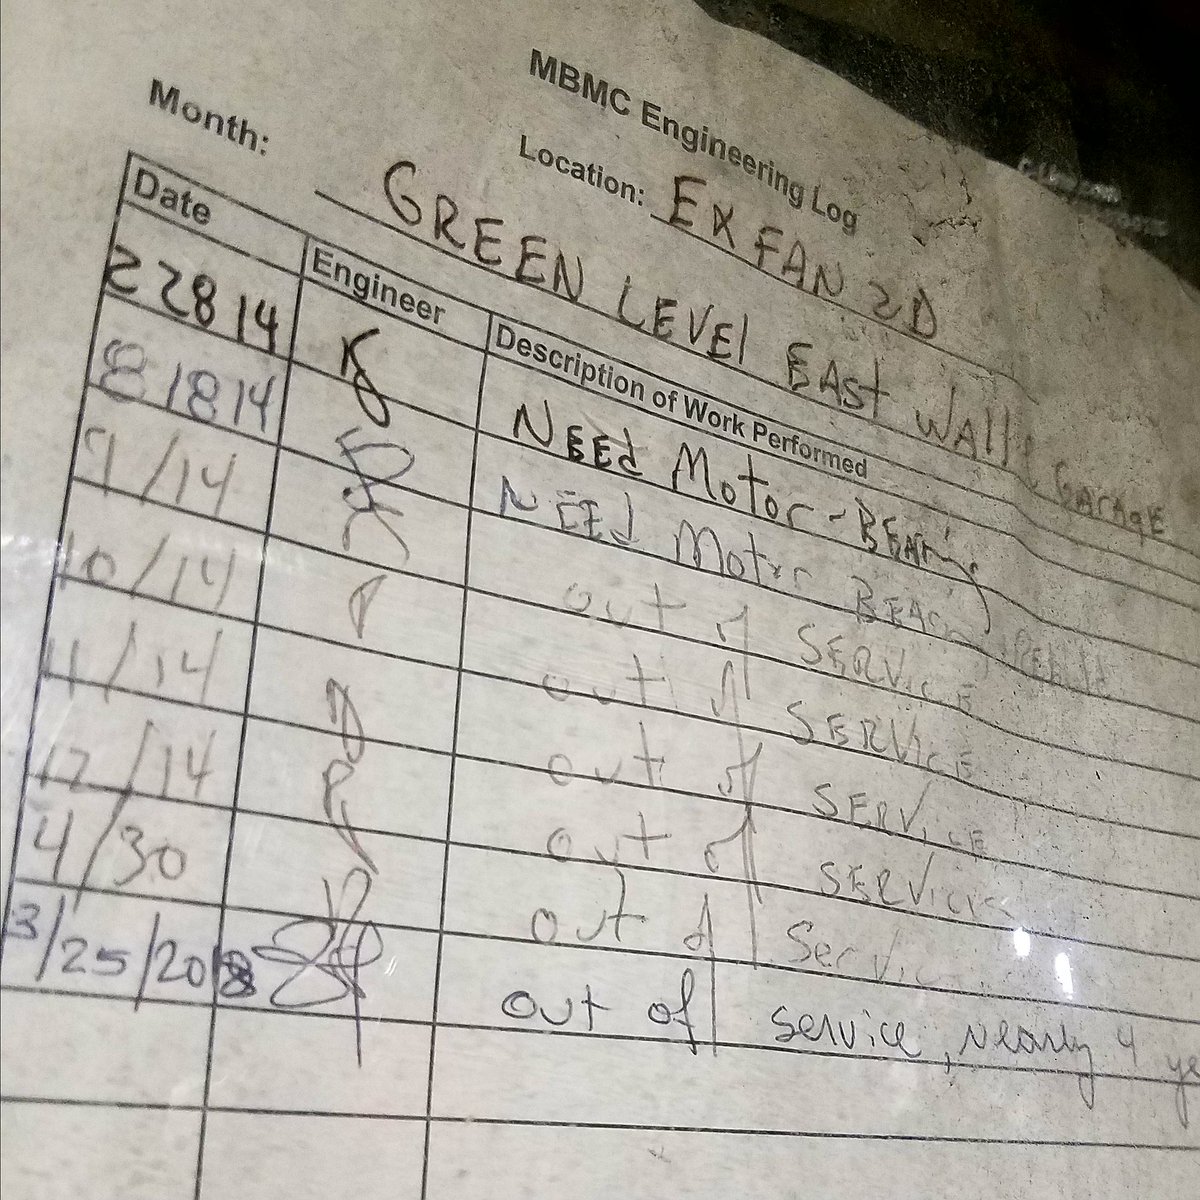 MBMC Engineering Log
Location: EX FAN 2D
Month: GREEN LEVEL EAST WALL GARAGE
Date Engineer Description of Work Performed
2 28 14 NEEd MOTOR-BEARING
8 18 14 NEEd MOTOR
9/14 out of SERVICE
10/14 out of SERVICE
11/14 out of SERVICE
12/14 out of SERVICE
4/30 out of Service
3/25/2018 out of service, Nearly 4